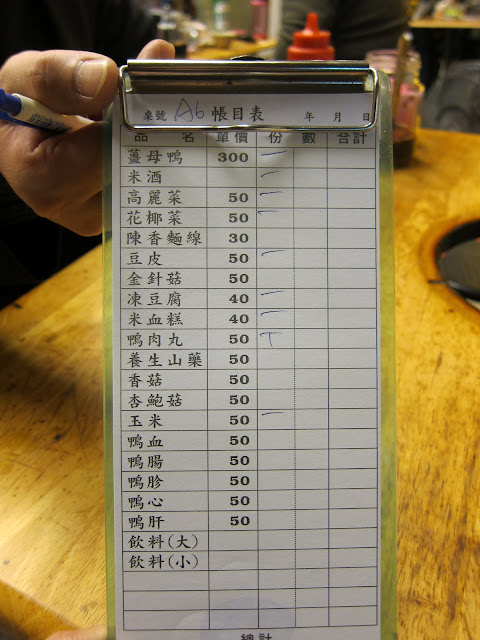 桌號 A6 帳目表 年 月 日
品 名 單價 份 數 合計
薑母鴨 300 一
米酒 一
高麗菜 50 一
花椰菜 50 一
陳香麵線 30
豆皮 50 一
金針菇 50
凍豆腐 40 一
米血糕 40 一
鴨肉丸 50 T
養生山藥 50
香菇 50
杏鮑菇 50
玉米 50 一
鴨血 50
鴨腸 50
鴨胗 50
鴨心 50
鴨肝 50
飲料(大)
飲料(小)
總計